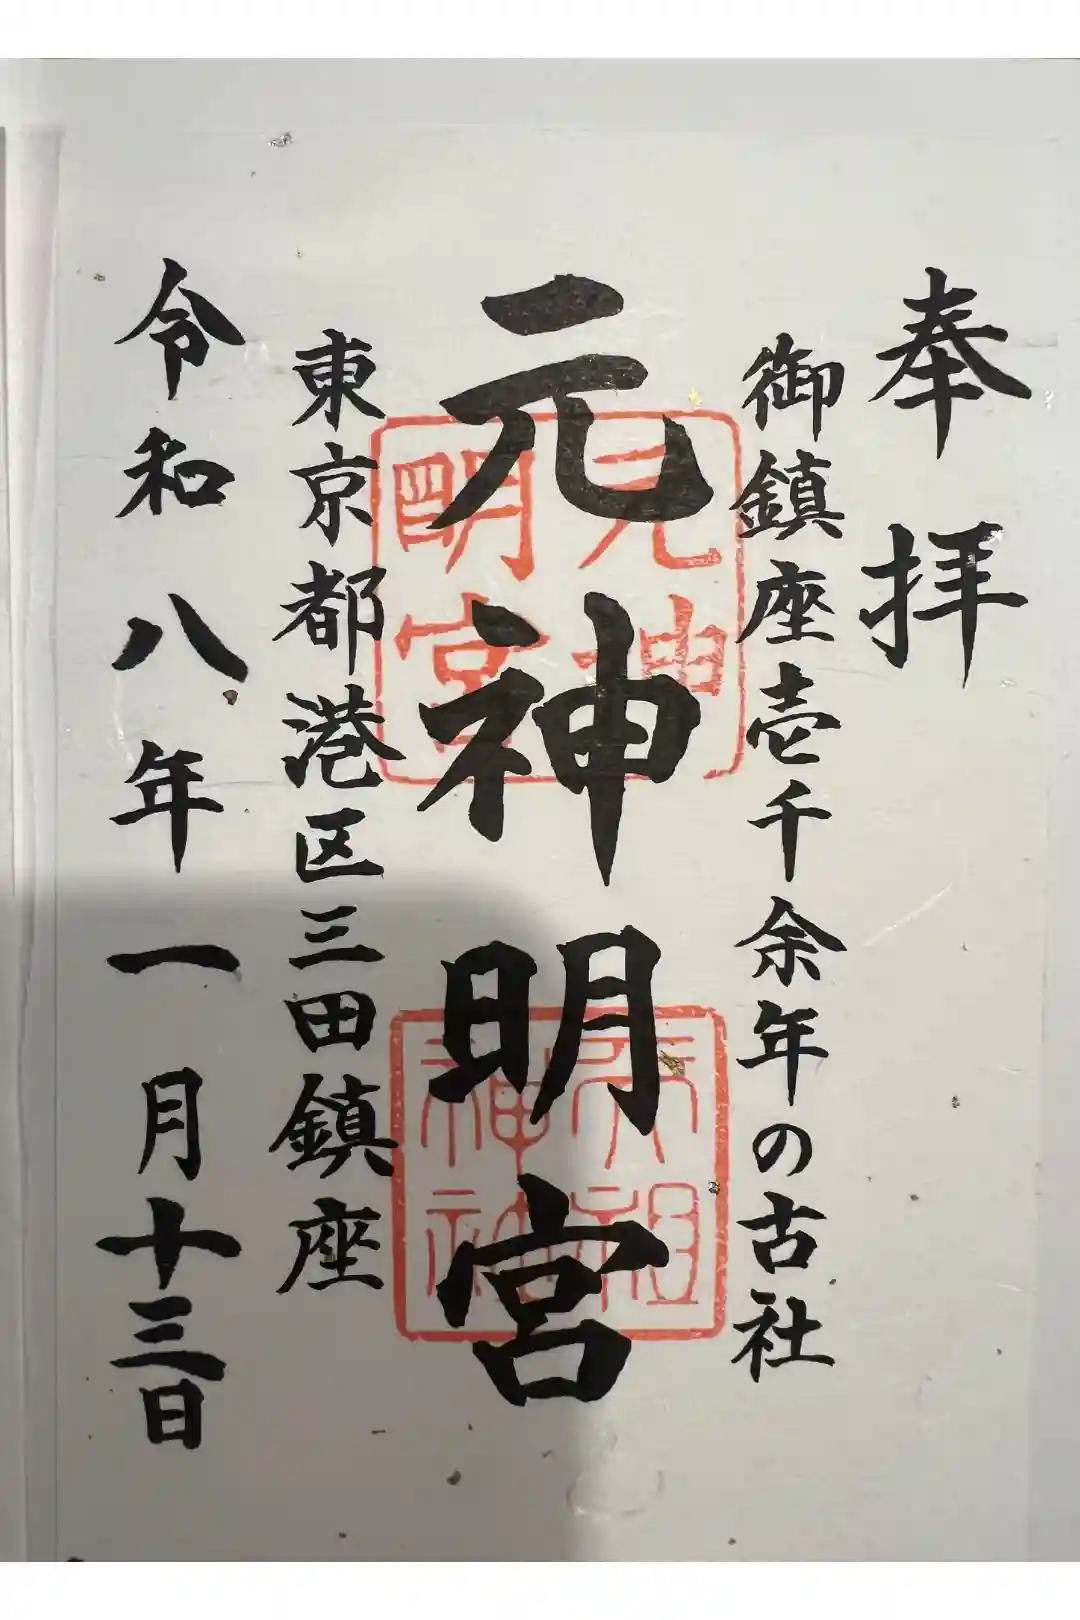 奉拝
御鎮座壱千余年の古社
元神明宮
東京都港区三田鎮座
令和八年一月十三日
元神
明宮
天祖
神社